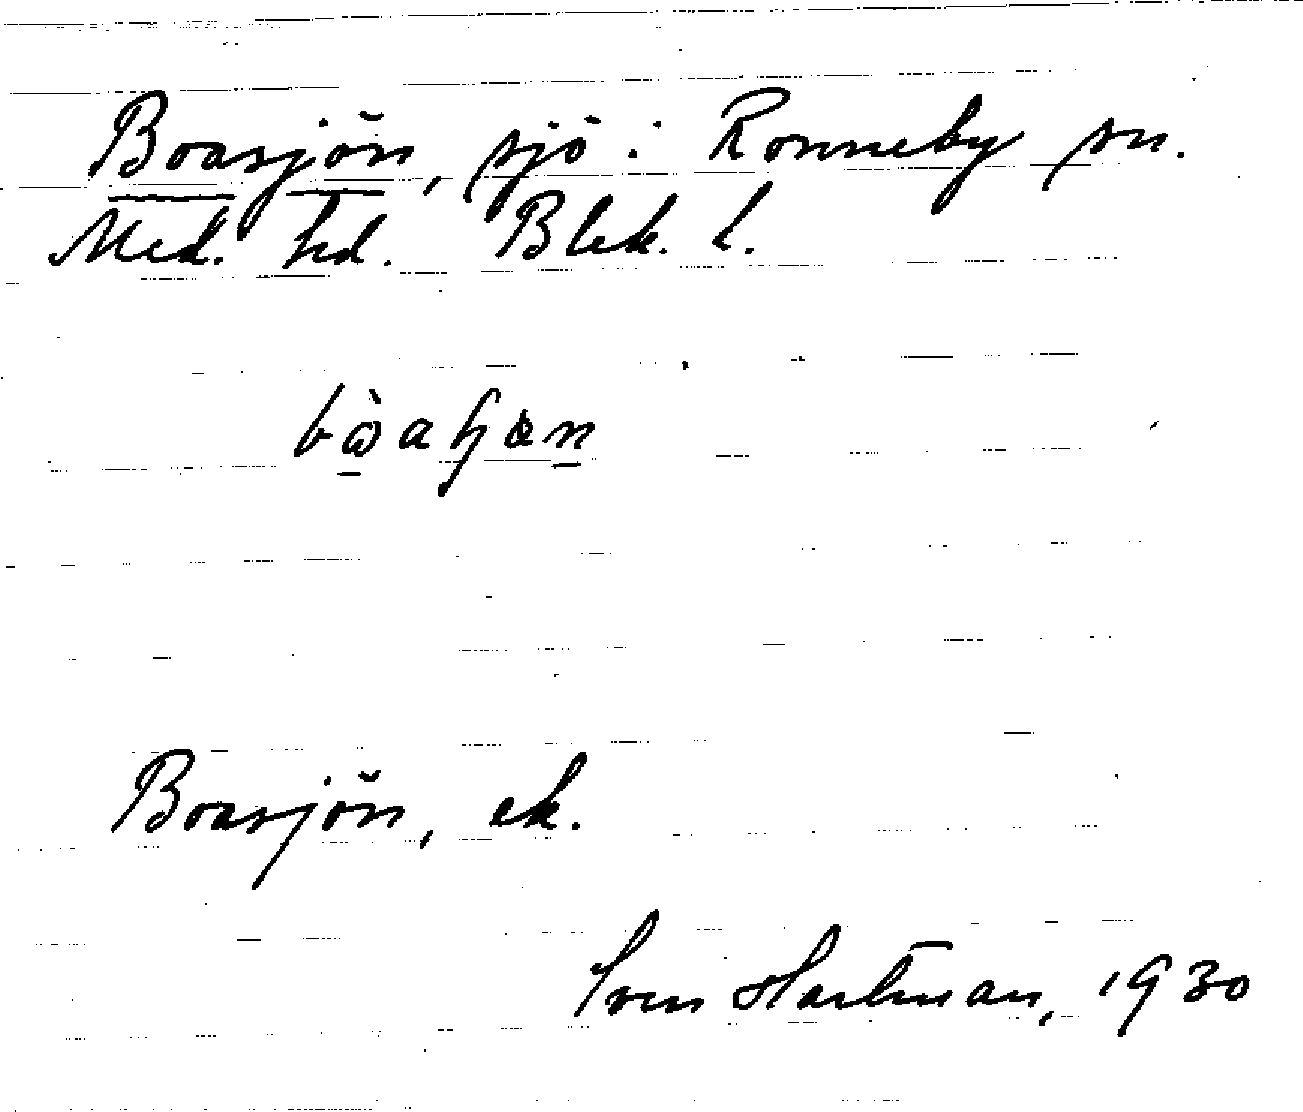 Boasjön, sjö i Ronneby sn.
Med. hd. Blek. l.
Boasjön, ek.
Sven Hartman, 1930